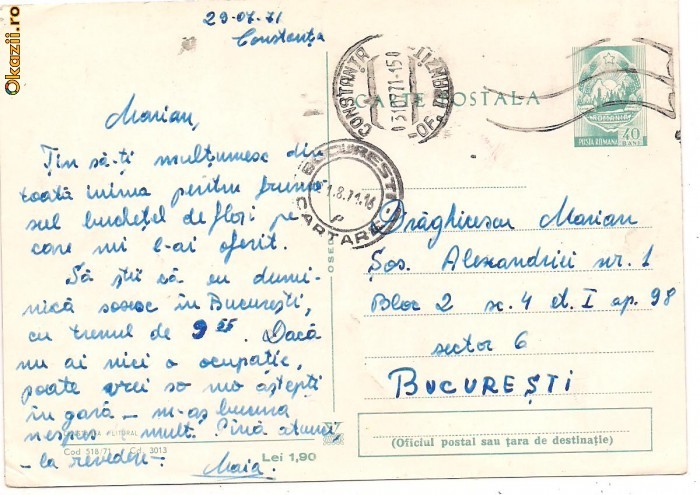 Okazii.ro
29-07-71
Constanța
Marian,
Țin să-ți mulțumesc din
toată inima pentru frumo
sul buchețel de flori pe
care mi l-ai oferit.
Să știi că eu dumi-
nică sosesc în București,
cu trenul de 9 55. Dacă
nu ai nici o ocupație,
poate vrei să mă aștepți
în gară - m-aș bucura
nespus mult. Pînă atunci
- la revedere -
Maia.
LITORAL
Cod 518/71 Cd. 3013
Lei 1,90
CONSTANȚA
031.07.71-15
BUCUREȘTI
1.8.71.16
CARTARE
CARTE POSTALA
POSTA ROMANA 40 BANI
Drăghicescu Marian
Șos. Alexandriei nr. 1
Bloc 2 sc. 4 et. I ap. 98
sector 6
BUCUREȘTI
(Oficiul postal sau țara de destinație)